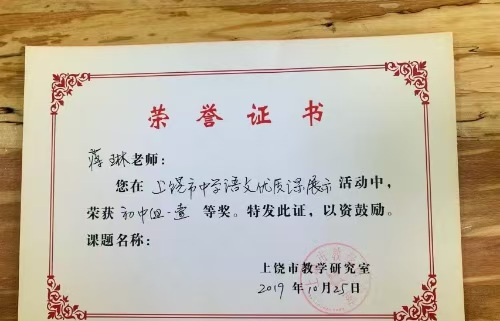 荣誉证书
蒋琳老师：
您在上饶市中学语文优质课展示活动中，
荣获初中组·壹等奖。特发此证，以资鼓励。
课题名称：
上饶市教学研究室
2019年10月25日